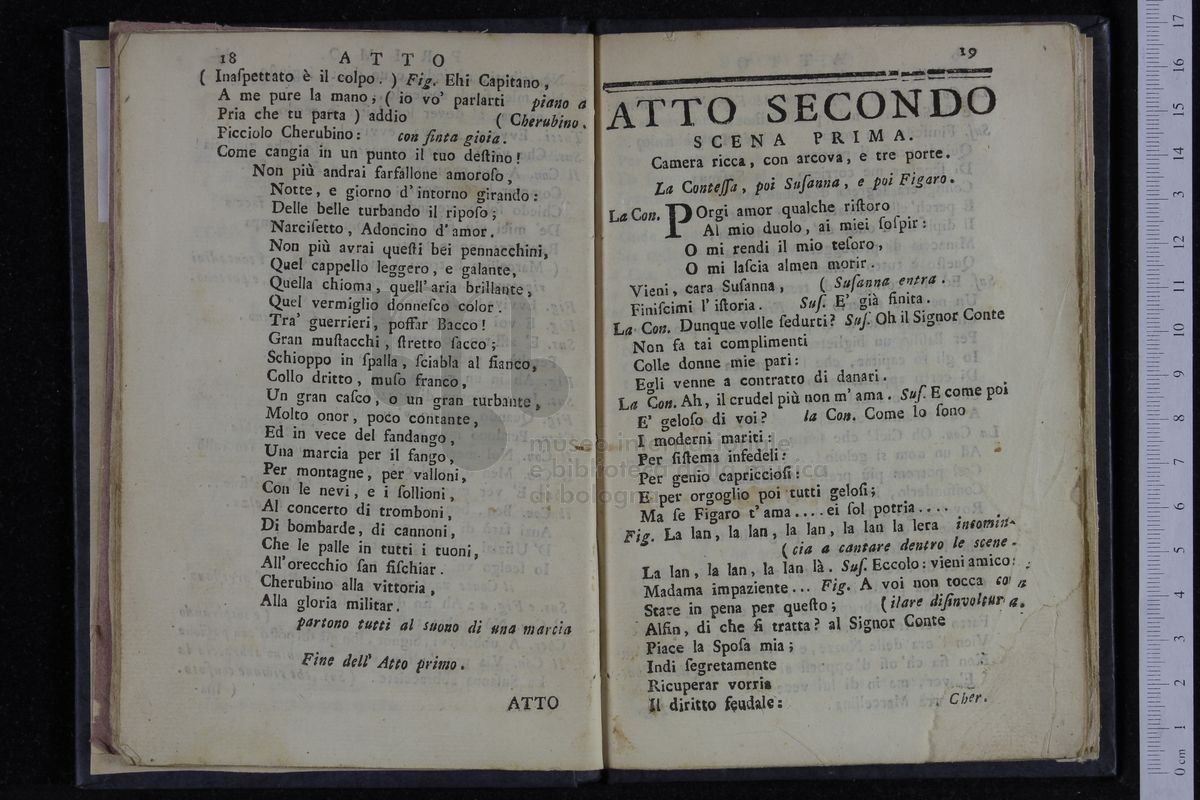 18 A T T O
( Inaſpettato è il colpo. ) Fig. Ehi Capitano,
A me pure la mano; ( io vo' parlarti piano a
Pria che tu parta ) addio ( Cherubino.
Picciolo Cherubino: con finta gioia.
Come cangia in un punto il tuo deſtino!
Non più andrai farfallone amoroſo,
Notte, e giorno d'intorno girando:
Delle belle turbando il ripoſo;
Narciſetto, Adoncino d'amor.
Non più avrai queſti bei pennacchini,
Quel cappello leggero, e galante,
Quella chioma, quell'aria brillante,
Quel vermiglio donneſco color.
Tra' guerrieri, poffar Bacco!
Gran muſtacchi, ſtretto ſacco;
Schioppo in ſpalla, ſciabla al fianco,
Collo dritto, muſo franco,
Un gran caſco, o un gran turbante,
Molto onor, poco contante,
Ed in vece del fandango,
Una marcia per il fango,
Per montagne, per valloni,
Con le nevi, e i ſollioni,
Al concerto di tromboni,
Di bombarde, di cannoni,
Che le palle in tutti i tuoni,
All'orecchio fan fiſchiar.
Cherubino alla vittoria,
Alla gloria militar.
partono tutti al suono di una marcia
Fine dell' Atto primo.
ATTO
19
ATTO SECONDO
SCENA PRIMA.
Camera ricca, con arcova, e tre porte.
La Conteſſa, poi Suſanna, e poi Figaro.
La Con. POrgi amor qualche riſtoro
Al mio duolo, ai miei ſoſpir:
O mi rendi il mio teſoro,
O mi laſcia almen morir.
Vieni, cara Suſanna, ( Suſanna entra.
Finiſcimi l'iſtoria. Suſ. E' già finita.
La Con. Dunque volle ſedurti? Suſ. Oh il Signor Conte
Non fa tai complimenti
Colle donne mie pari:
Egli venne a contratto di danari.
La Con. Ah, il crudel più non m'ama. Suſ. E come poi
E' geloſo di voi? la Con. Come lo ſono
I moderni mariti:
Per ſiſtema infedeli:
Per genio capriccioſi:
E per orgoglio poi tutti geloſi;
Ma ſe Figaro t'ama .... ei ſol potria ....
Fig. La lan, la lan, la lan, la lan la lera incomin-
( cia a cantare dentro le scene.
La lan, la lan, la lan là. Suſ. Eccolo: vieni amico:
Madama impaziente... Fig. A voi non tocca co n
Stare in pena per queſto; ( ilare diſinvoltura.
Alfin, di che ſi tratta? al Signor Conte
Piace la Spoſa mia;
Indi ſegretamente
Ricuperar vorria
Il diritto feudale:
Cher.
museo internazionale
e biblioteca della musica
di bologna
0 cm 1 2 3 4 5 6 7 8 9 10 11 12 13 14 15 16 17